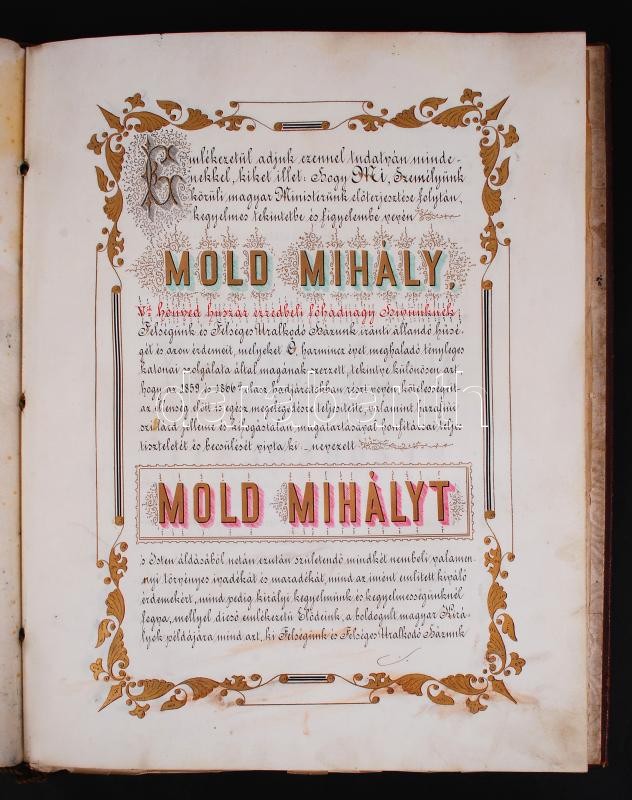 Emlékezetül adjuk ezennel tudatván minde-
nekkel, kiket illet: Hogy Mi, Személyünk
körüli magyar Ministerünk előterjesztése folytán,
kegyelmes tekintetbe és figyelembe vevén
MOLD MIHÁLY,
honved huszár ezredbeli főhadnagy Hivünknek,
Felségünk és Felséges Uralkodó Házunk iránti állandó hűsé-
gét és azon érdemeit, melyeket Ő, harmincz évet meghaladó tényleges
katonai szolgálata által magának szerzett, tekintve különösen az
hogy az 1859 és 1866 olasz hadjáratokban részt vevén kötelességeit
az ellenség előtt is egész megelégedésre teljesitette, valamint hazafiui
szilárd jelleme és kifogástalan magatartásával honfitársai teljes
tiszteletét és becsülését vivta ki - nevezett
MOLD MIHÁLYT
s Isten áldásából netán ezután születendő mindkét nembeli valamen-
nyi törvényes ivadékát és maradékát, mind az imént emlitett kiváló
érdemekért, mind pedig királyi kegyelmünk és kegyelmességünknél
fogva, mellyel dicső emlékezetű Elődeink, a boldogult magyar Kirá-
lyok példájára mind azt, ki Felségünk és Felséges Uralkodó Házunk
darabanth